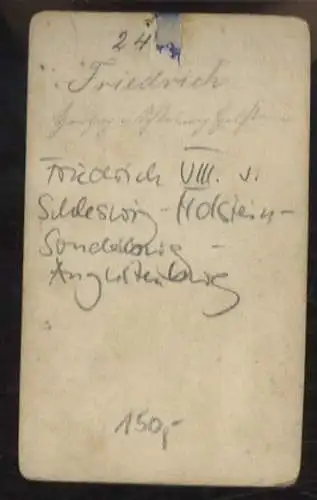 24
Friedrich
Herzog v. Schleswig Holstein
Friedrich VIII. v.
Schleswig-Holstein-
Sonderburg-
Augustenburg
150,-